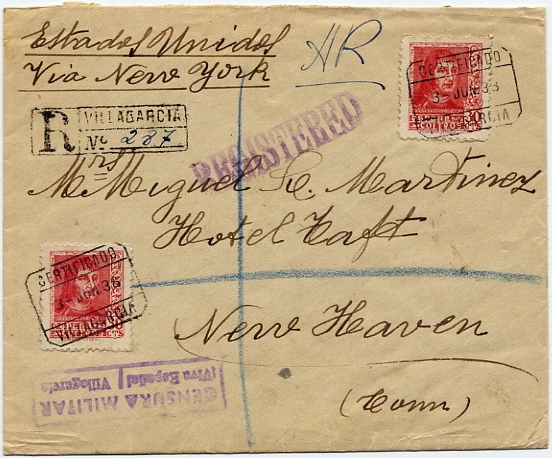 Estados Unidos
Via New York
AR
CERTIFICADO
3-JUN.38
VILLAGARCIA
R VILLAGARCIA
Nº 237
REGISTERED
Mrs
M Miguel Martinez
Hotel Taft
New Haven
(Conn)
CERTIFICADO
3-JUN.38
VILLAGARCIA
CENSURA MILITAR
¡Viva España! Villagarcía